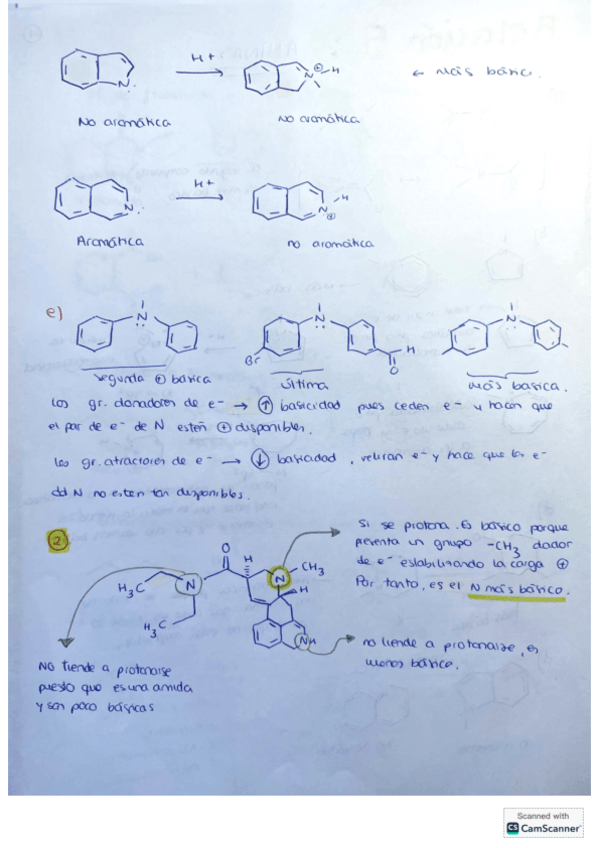 H+
← Más básic.
No aromática
No aromática
H+
Aromática
no aromática
e)
Br
H
O
Segunda ⊕ básica
última
más basica.
Los gr. donadores de e- → ↑ basicidad pues ceden e- y hacen que
el par de e- de N estén ⊕ disponibles.
Los gr. atractores de e- → ↓ basicidad, retiran e- y hace que los e-
del N no esten tan disponibles.
2
Si se protona. Es básico porque
presenta un grupo -CH3 dador
de e- estabilizando la carga ⊕
Por tanto, es el N más básico.
O
H
N
CH3
N
H
H3C
H3C
NH
no tiende a protonarse, es
menos básico.
NO tiende a protonarse
puesto que es una amida
y son poco básicas
Scanned with
CS CamScanner